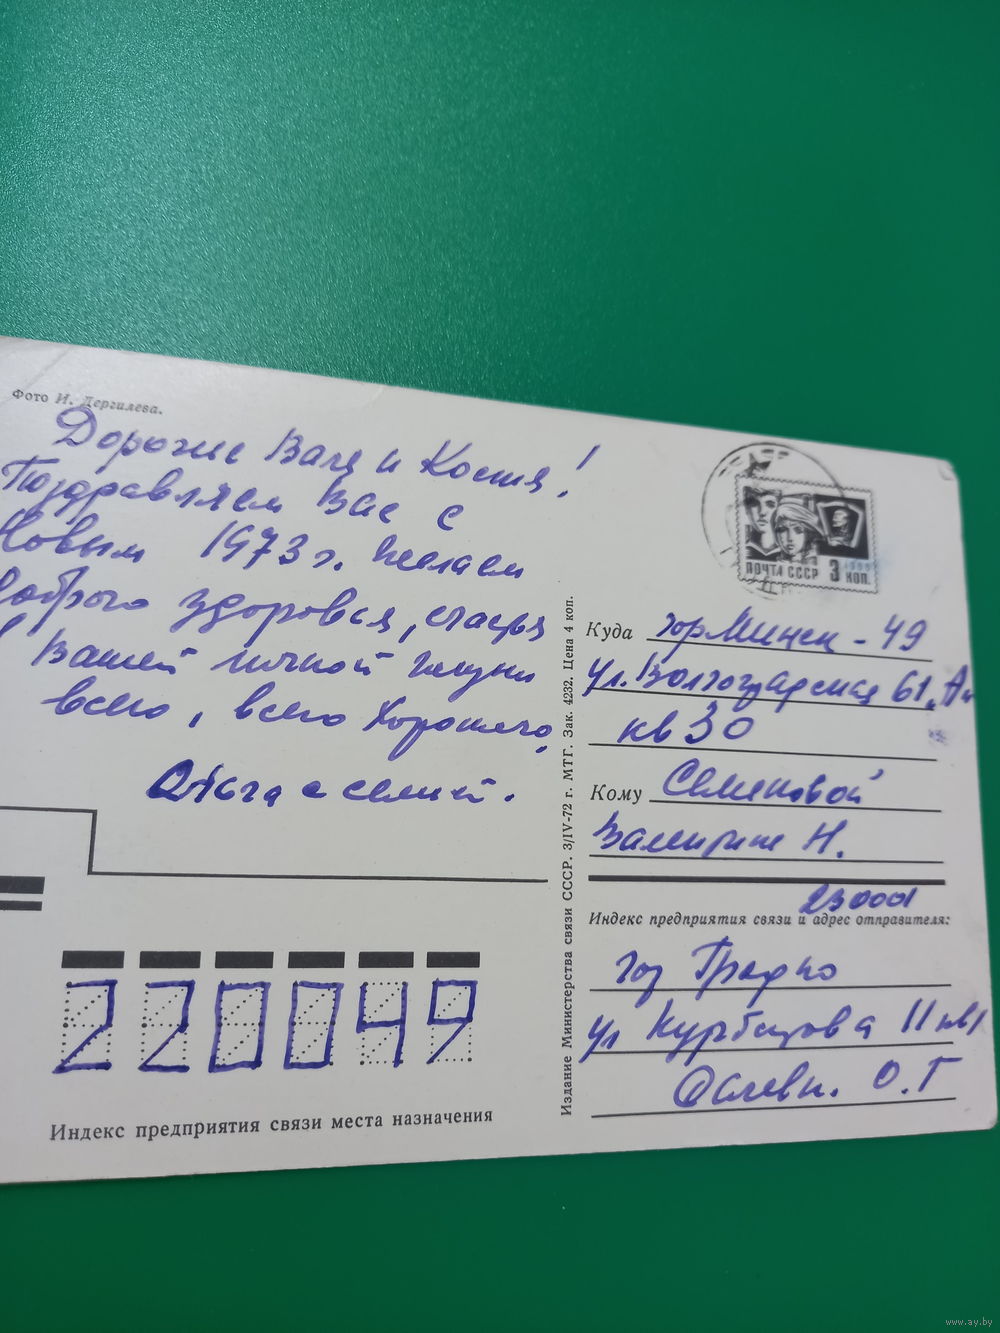 Фото И. Дергилева.
Дорогие Валя и Костя!
Поздравляем Вас с
Новым 1973 г. Желаем
Доброго здоровья, счастья
Вашей личной жизни
всего, всего Хорошего,
Ольга с семьей.
ПОЧТА СССР 3 КОП.
Издание Министерства связи СССР. 3/IV-72 г. МТГ. Зак. 4232. Цена 4 коп.
Куда гор Минск - 49
ул. Волгоградская 61 "А"
кв 30
Кому Семеновой
Валентине Н.
230001
Индекс предприятия связи и адрес отправителя:
гор Гродно
ул 11 кв1
О. Г
220049
Индекс предприятия связи места назначения
www.ay.by